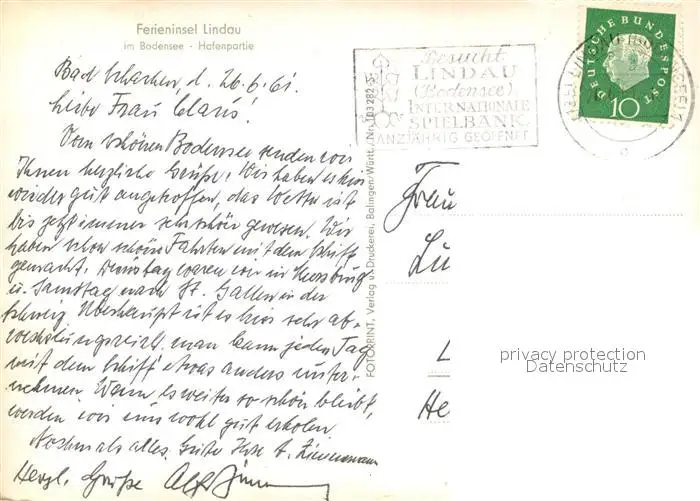 Ferieninsel Lindau
im Bodensee - Hafenpartie
Bad Schachen, d. 26.6.61.
Liebe Frau Claus!
Vom schönen Bodensee senden wir
Ihnen herzliche Grüße. Wir haben es hier
wieder gut angetroffen, das Wetter ist
bis jetzt immer sehr schön gewesen. Wir
haben schon schöne Fahrten mit dem Schiff
gemacht. Dienstag waren wir in Meersburg
u. Samstag nach St. Gallen in der
Schweiz. Überhaupt ist es hier sehr ab-
wechslungsreich, man kann jeden Tag
mit dem Schiff etwas anders unter-
nehmen. Wenn es weiter so schön bleibt,
werden wir uns wohl gut erholen.
Nochmals alles Gute Ihre A. Zimmermann
Herzl. Grüße
FOTOPRINT, Verlag u. Druckerei, Balingen/Württ. / Nr. 103 282
Besucht
LINDAU
(Bodensee)
INTERNATIONALE
SPIELBANK
GANZJÄHRIG GEÖFFNET
DEUTSCHE BUNDESPOST
10
Frau
Lu
L
He
privacy protection
Datenschutz